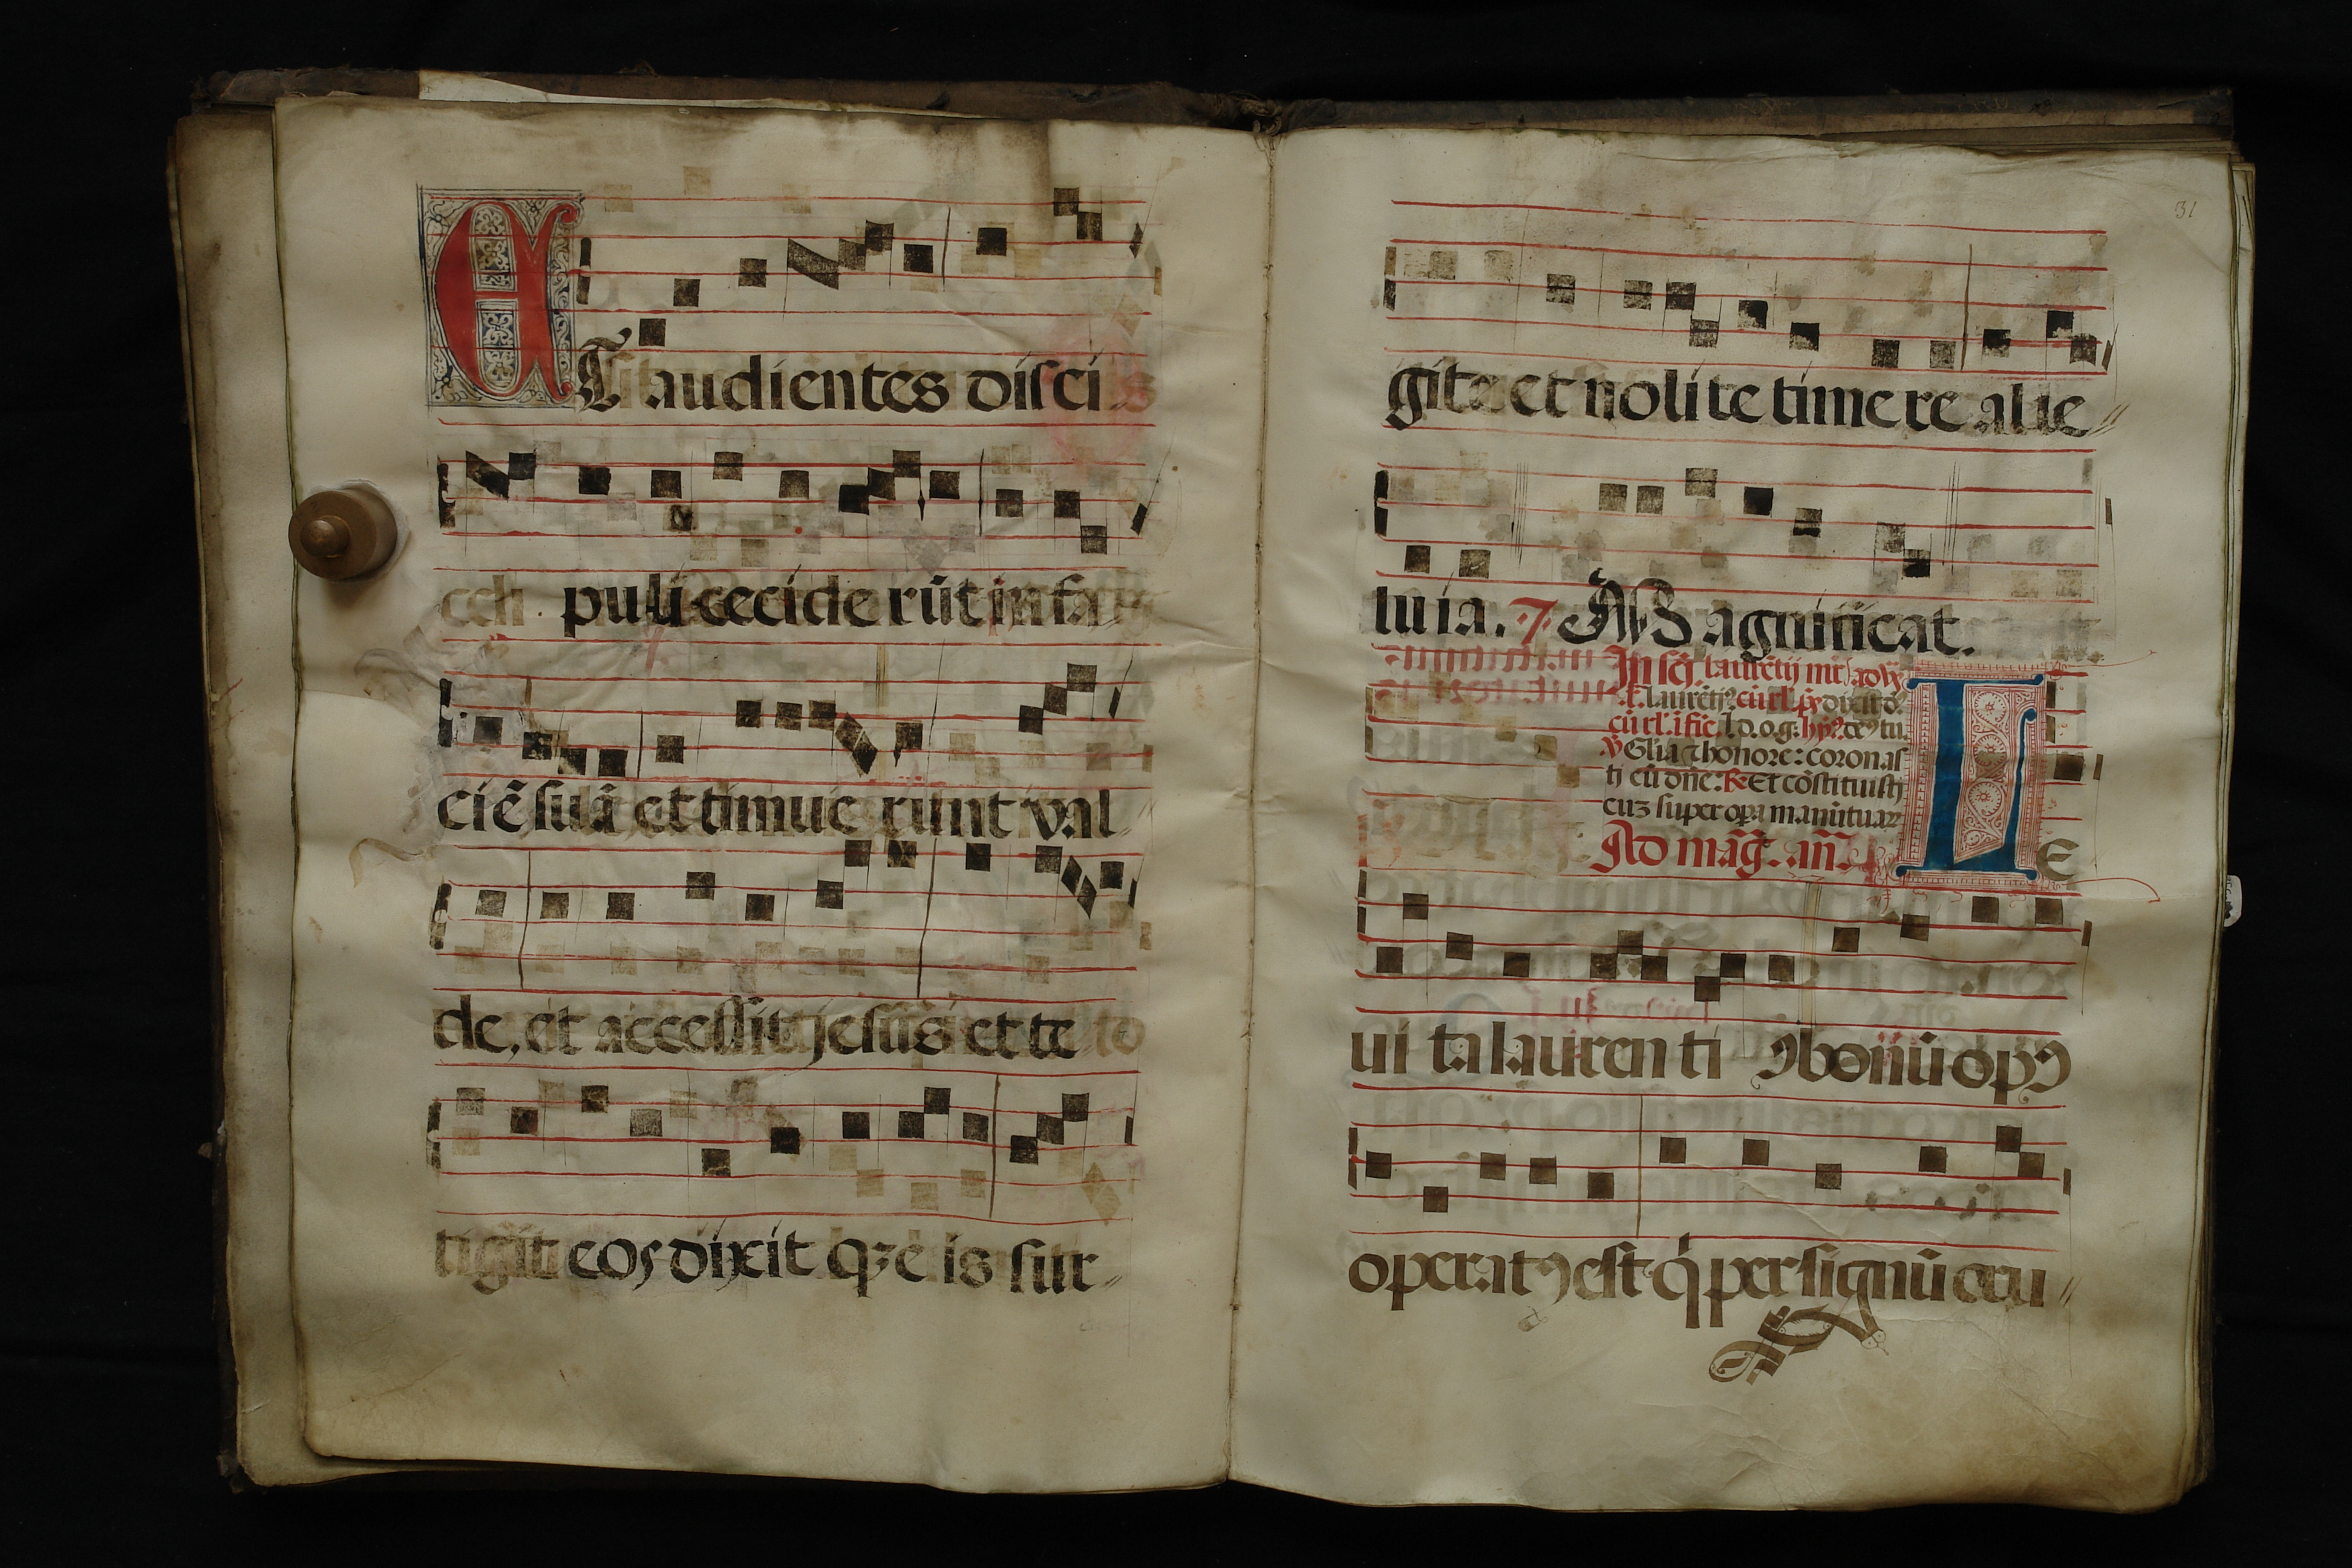 ET audientes disci
puli cecide rūt in fa
ciē suā et timue runt val
de, et accessit jesus et te
tigit eos dixit qȝ e is sur
31
gite et nolite timere alle
luia. 7 Magnificat.
In scī laurētij mr̄
Glīa et honore: coronas
ti eū dn̄e. ℟ Et cōstituisti
eū super opa manū tuaꝝ
Ad māg. an̄. LE
ui ta laurenti ꝯ bonū opꝰ
operatꝰ est q̇ per signū cru